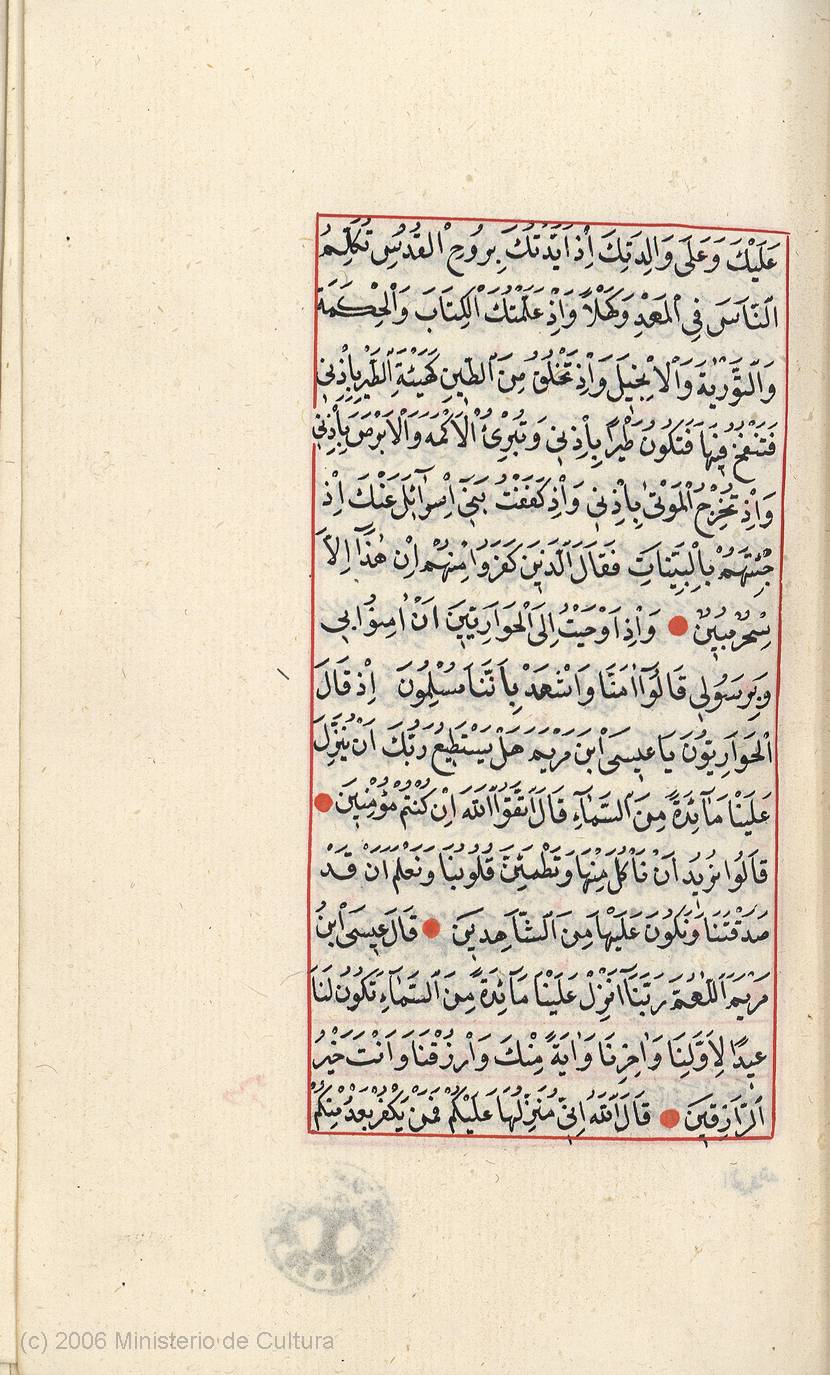 عَلَيْكَ وَعَلَى وَالِدَتِكَ اِذْ اَيَّدْتُكَ بِرُوحِ الْقُدُسِ تُكَلِّمُ
النَّاسَ فِي الْمَهْدِ وَكَهْلًا وَاِذْ عَلَّمْتُكَ الْكِتَابَ وَالْحِكْمَةَ
وَالتَّوْرٰيةَ وَالْاِنْجِيلَ وَاِذْ تَخْلُقُ مِنَ الطِّينِ كَهَيْئَةِ الطَّيْرِ بِاِذْنِي
فَتَنْفُخُ فِيهَا فَتَكُونُ طَيْرًا بِاِذْنِي وَتُبْرِئُ الْاَكْمَهَ وَالْاَبْرَصَ بِاِذْنِي
وَاِذْ تُخْرِجُ الْمَوْتٰى بِاِذْنِي وَاِذْ كَفَفْتُ بَنِي اِسْرَآئِلَ عَنْكَ اِذْ
جِئْتَهُمْ بِالْبَيِّنَاتِ فَقَالَ الَّذِينَ كَفَرُوا مِنْهُمْ اِنْ هٰذَٓا اِلَّا
سِحْرٌ مُبِينٌ وَاِذْ اَوْحَيْتُ اِلَى الْحَوَارِيِّينَ اَنْ اٰمِنُوا بِي
وَبِرَسُولِي قَالُٓوا اٰمَنَّا وَاشْهَدْ بِاَنَّنَا مُسْلِمُونَ اِذْ قَالَ
الْحَوَارِيُّونَ يَا عِيسَى ابْنَ مَرْيَمَ هَلْ يَسْتَطِيعُ رَبُّكَ اَنْ يُنَزِّلَ
عَلَيْنَا مَآئِدَةً مِنَ السَّمَآءِ قَالَ اتَّقُوا اللّٰهَ اِنْ كُنْتُمْ مُؤْمِنِينَ
قَالُوا نُرِيدُ اَنْ نَأْكُلَ مِنْهَا وَتَطْمَئِنَّ قُلُوبُنَا وَنَعْلَمَ اَنْ قَدْ
صَدَقْتَنَا وَنَكُونَ عَلَيْهَا مِنَ الشَّاهِدِينَ قَالَ عِيسَى ابْنُ
مَرْيَمَ اللّٰهُمَّ رَبَّنَٓا اَنْزِلْ عَلَيْنَا مَآئِدَةً مِنَ السَّمَآءِ تَكُونُ لَنَا
عِيدًا لِاَوَّلِنَا وَاٰخِرِنَا وَاٰيَةً مِنْكَ وَارْزُقْنَا وَاَنْتَ خَيْرُ
الرَّازِقِينَ قَالَ اللّٰهُ اِنِّي مُنَزِّلُهَا عَلَيْكُمْ فَمَنْ يَكْفُرْ بَعْدُ مِنْكُمْ
(c) 2006 Ministerio de Cultura